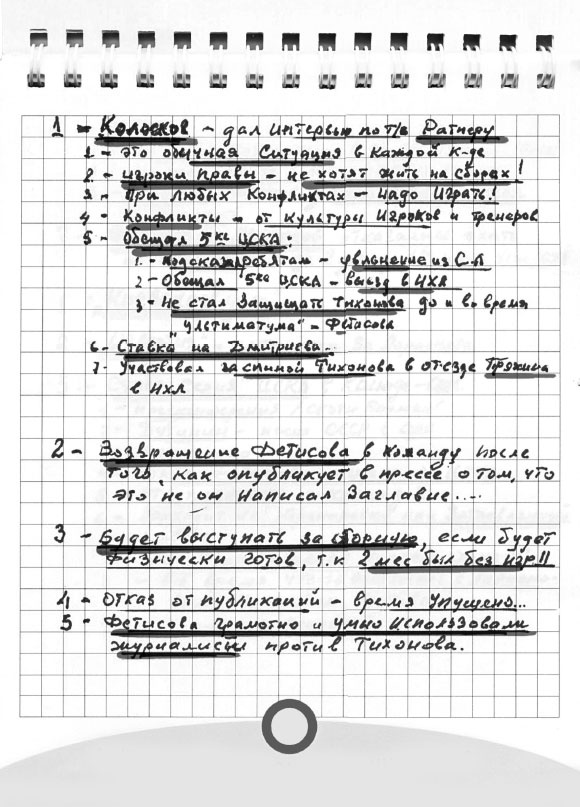 1 - Колосков - дал интервью по т/в Ратнеру
1 - это обычная ситуация в каждой к-де
2 - игроки правы - не хотят жить на сборах!
3 - При любых Конфликтах - Надо Играть!
4 - Конфликты - от культуры Игроков и тренеров
5 - Обещал 5ке ЦСКА:
1. Подсказал ребятам - увольнение из С.А
2 - Обещал 5ке ЦСКА - выезд в НХЛ
3 - Не стал Защищать Тихонова до и во время
"Ультиматума" - Фетисова
6 - Ставка на Дмитриева.
7 - Участвовал за спиной Тихонова в отъезде Пряхина
в НХЛ
2 - Возвращение Фетисова в Команду после
того, как опубликует в прессе о том, что
это не он Написал Заглавие....
3 - Будет выступать за сборную, если будет
физически готов, т.к 2 мес был без игр!!
4 - Отказ от публикаций - время упущено...
5 - Фетисова грамотно и умно Использовали
журналисты против Тихонова.